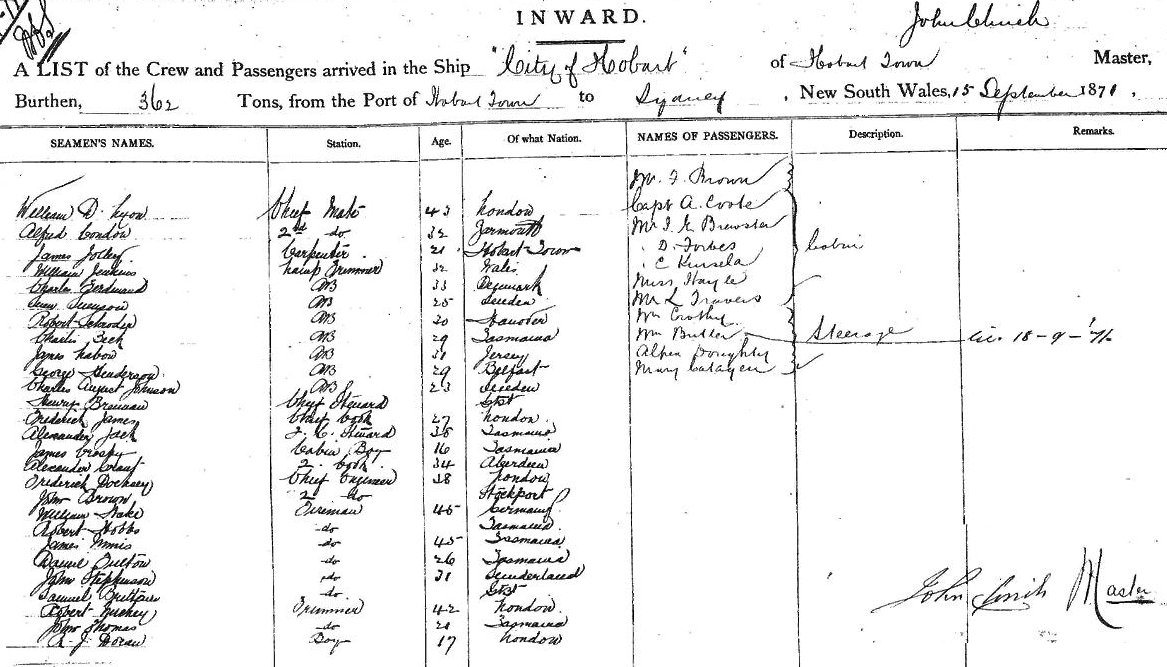 INWARD.
John Clinch
A LIST of the Crew and Passengers arrived in the Ship "City of Hobart" of Hobart Town Master,
Burthen, 362 Tons, from the Port of Hobart Town to Sydney, New South Wales, 15 September 1871,
SEAMEN'S NAMES. Station. Age. Of what Nation. NAMES OF PASSENGERS. Description. Remarks.
Mr. F. Brown
William D. Lyon Chief Mate 43 London Capt A. Coote
Alfred London 2nd do 32 Yarmouth Mr J. K Brewster
James Jolley Carpenter 21 Hobart Town D. Forbes Cabin
William Jenkins Lamp Trimmer 32 Wales C Kinsela
Charles Ferdinand AB 33 Denmark Miss Hayle
Swen Swenson AB 25 Sweden Mr L Travers
Robert Schroder AB 30 Hanover Wm Crothy
Charles Beck AB 29 Tasmania Wm Butler Steerage 18-9-71
James Labow AB 31 Jersey Doughty
George Henderson AB 29 Belfast Mary
Charles August Johnson AB 23 Sweden
Henry Brennan Chief Steward
Frederick James Chief Cook 27 London
Alexander Jack F. C. Steward 38 Tasmania
James Crosby Cabin Boy 16 Tasmania
Alexander Grant 2. Cook 34 Aberdeen
Frederick Docksey Chief Engineer 38 London
John Brown 2 do Stockport
William Hake Fireman 45 Germany
Robert Hobbs do Tasmania
James Innis do 45 Tasmania
Daniel Bulton do 26 Tasmania
John Stephenson do 31 Sunderland
Samuel do
Robert Trimmer 42 London
John Thomas do 21 Tasmania
A. J Doran Boy 17 London
John Clinch Master